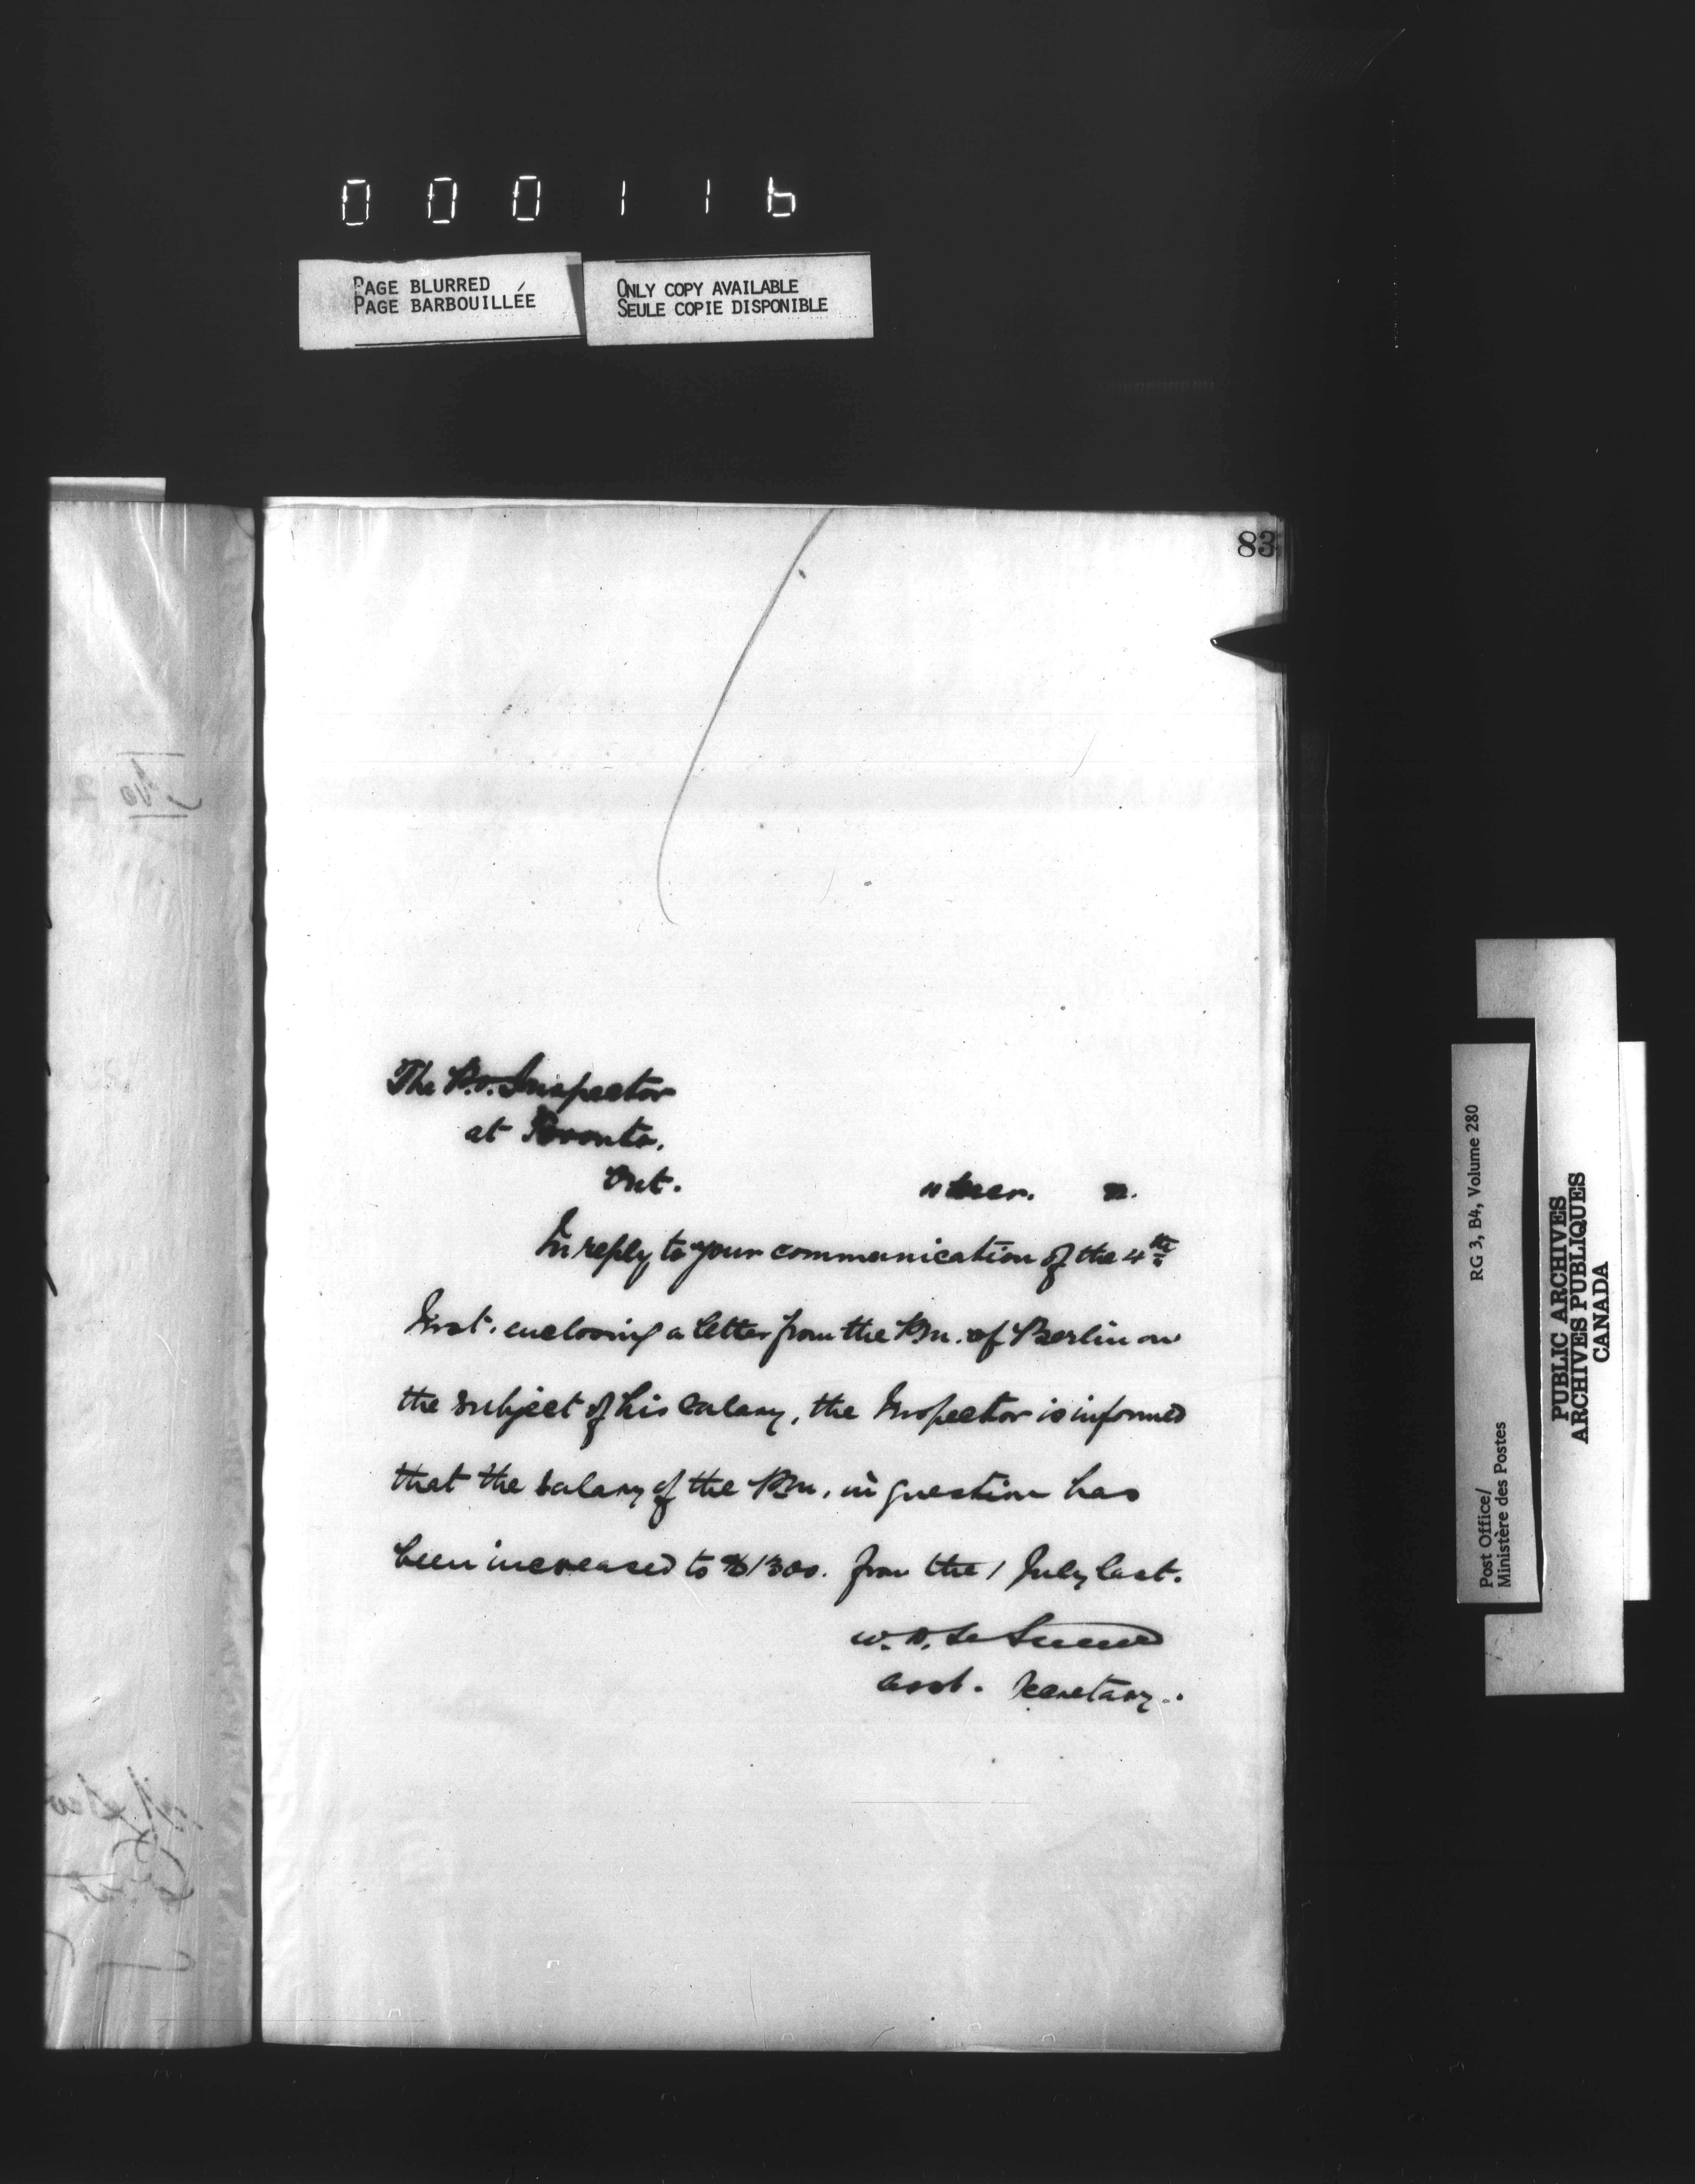 000116
PAGE BLURRED
PAGE BARBOUILLÉE
ONLY COPY AVAILABLE
SEULE COPIE DISPONIBLE
83
The P.O. Inspector
at Toronto.
Ont.
In reply to your communication of the 4th
Inst. enclosing a letter from the P.M. of Berlin on
the subject of his salary, the Inspector is informed
that the salary of the P.M. in question has
been increased to $1300. from the 1 July last.
W. D. Le Sueur
Asst. Secretary.
RG 3, B4, Volume 280
Post Office/
Ministère des Postes
PUBLIC ARCHIVES
ARCHIVES PUBLIQUES
CANADA